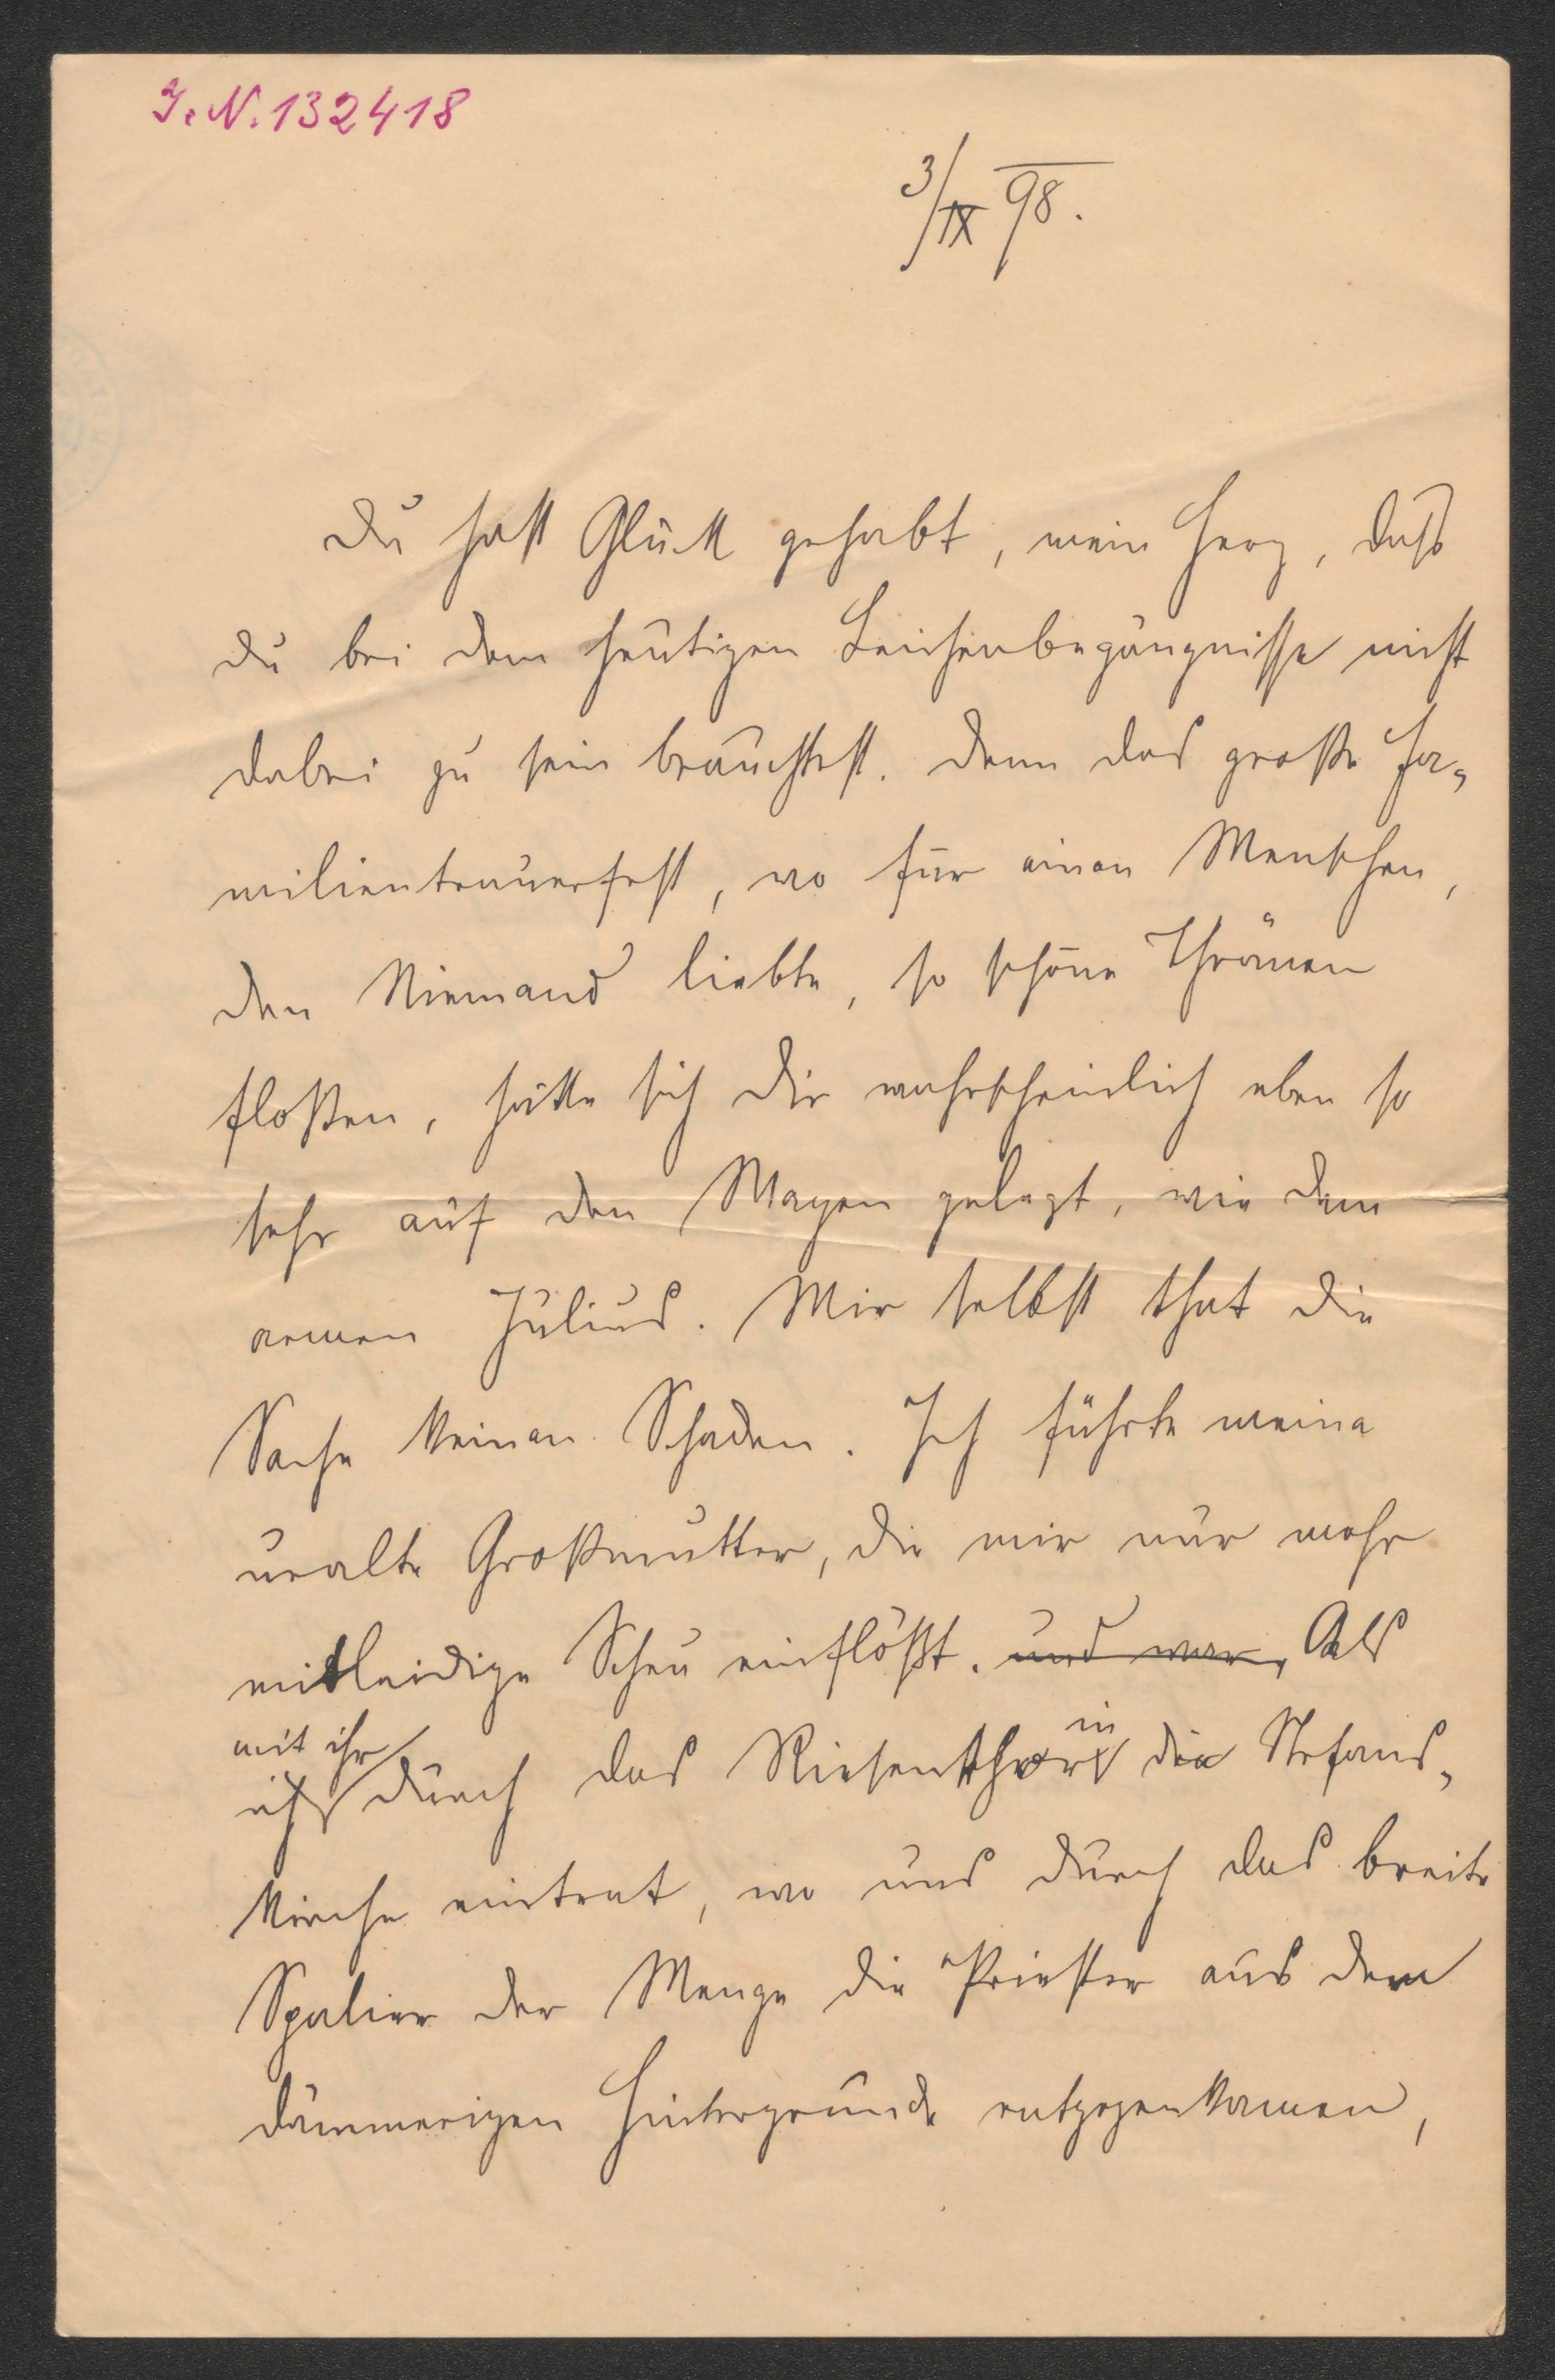 I. N. 132418
3/IX 98.
Du hast Glück gehabt, mein Herz, daß
du bei dem heutigen Leichenbegängnisse nicht
dabei zu sein brauchtest. Denn das große Fa-
milientrauerfest, wo für einen Menschen,
den Niemand liebte, so schöne Thränen
floßen, hätte sich dir wahrscheinlich eben so
sehr auf den Magen gelegt, wie dem
armen Julius. Mir selbst that die
Sache keinen Schaden. Ich führte meine
uralte Großmutter, die mir nur mehr
mitleidige Scheu einflößt. und war, Als
mit ihr in
ich durch das Riesenthor die Stefans-
kirche eintrat, wo uns durch das breite
Spalier der Menge die Priester aus dem
dämmerigen Hintergrunde entgegenkamen,